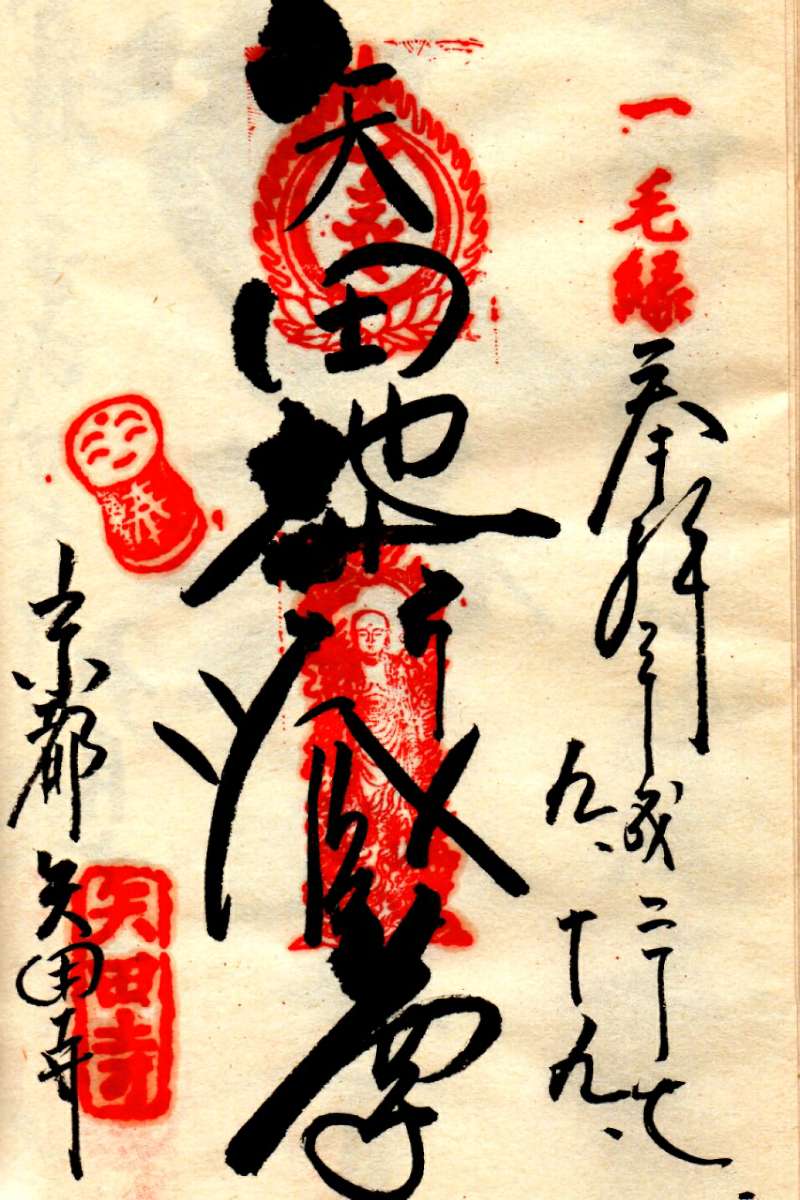 一毛縁
奉拝 平成二十七
九、十九、
矢田地蔵尊
京都 矢田寺
矢田寺